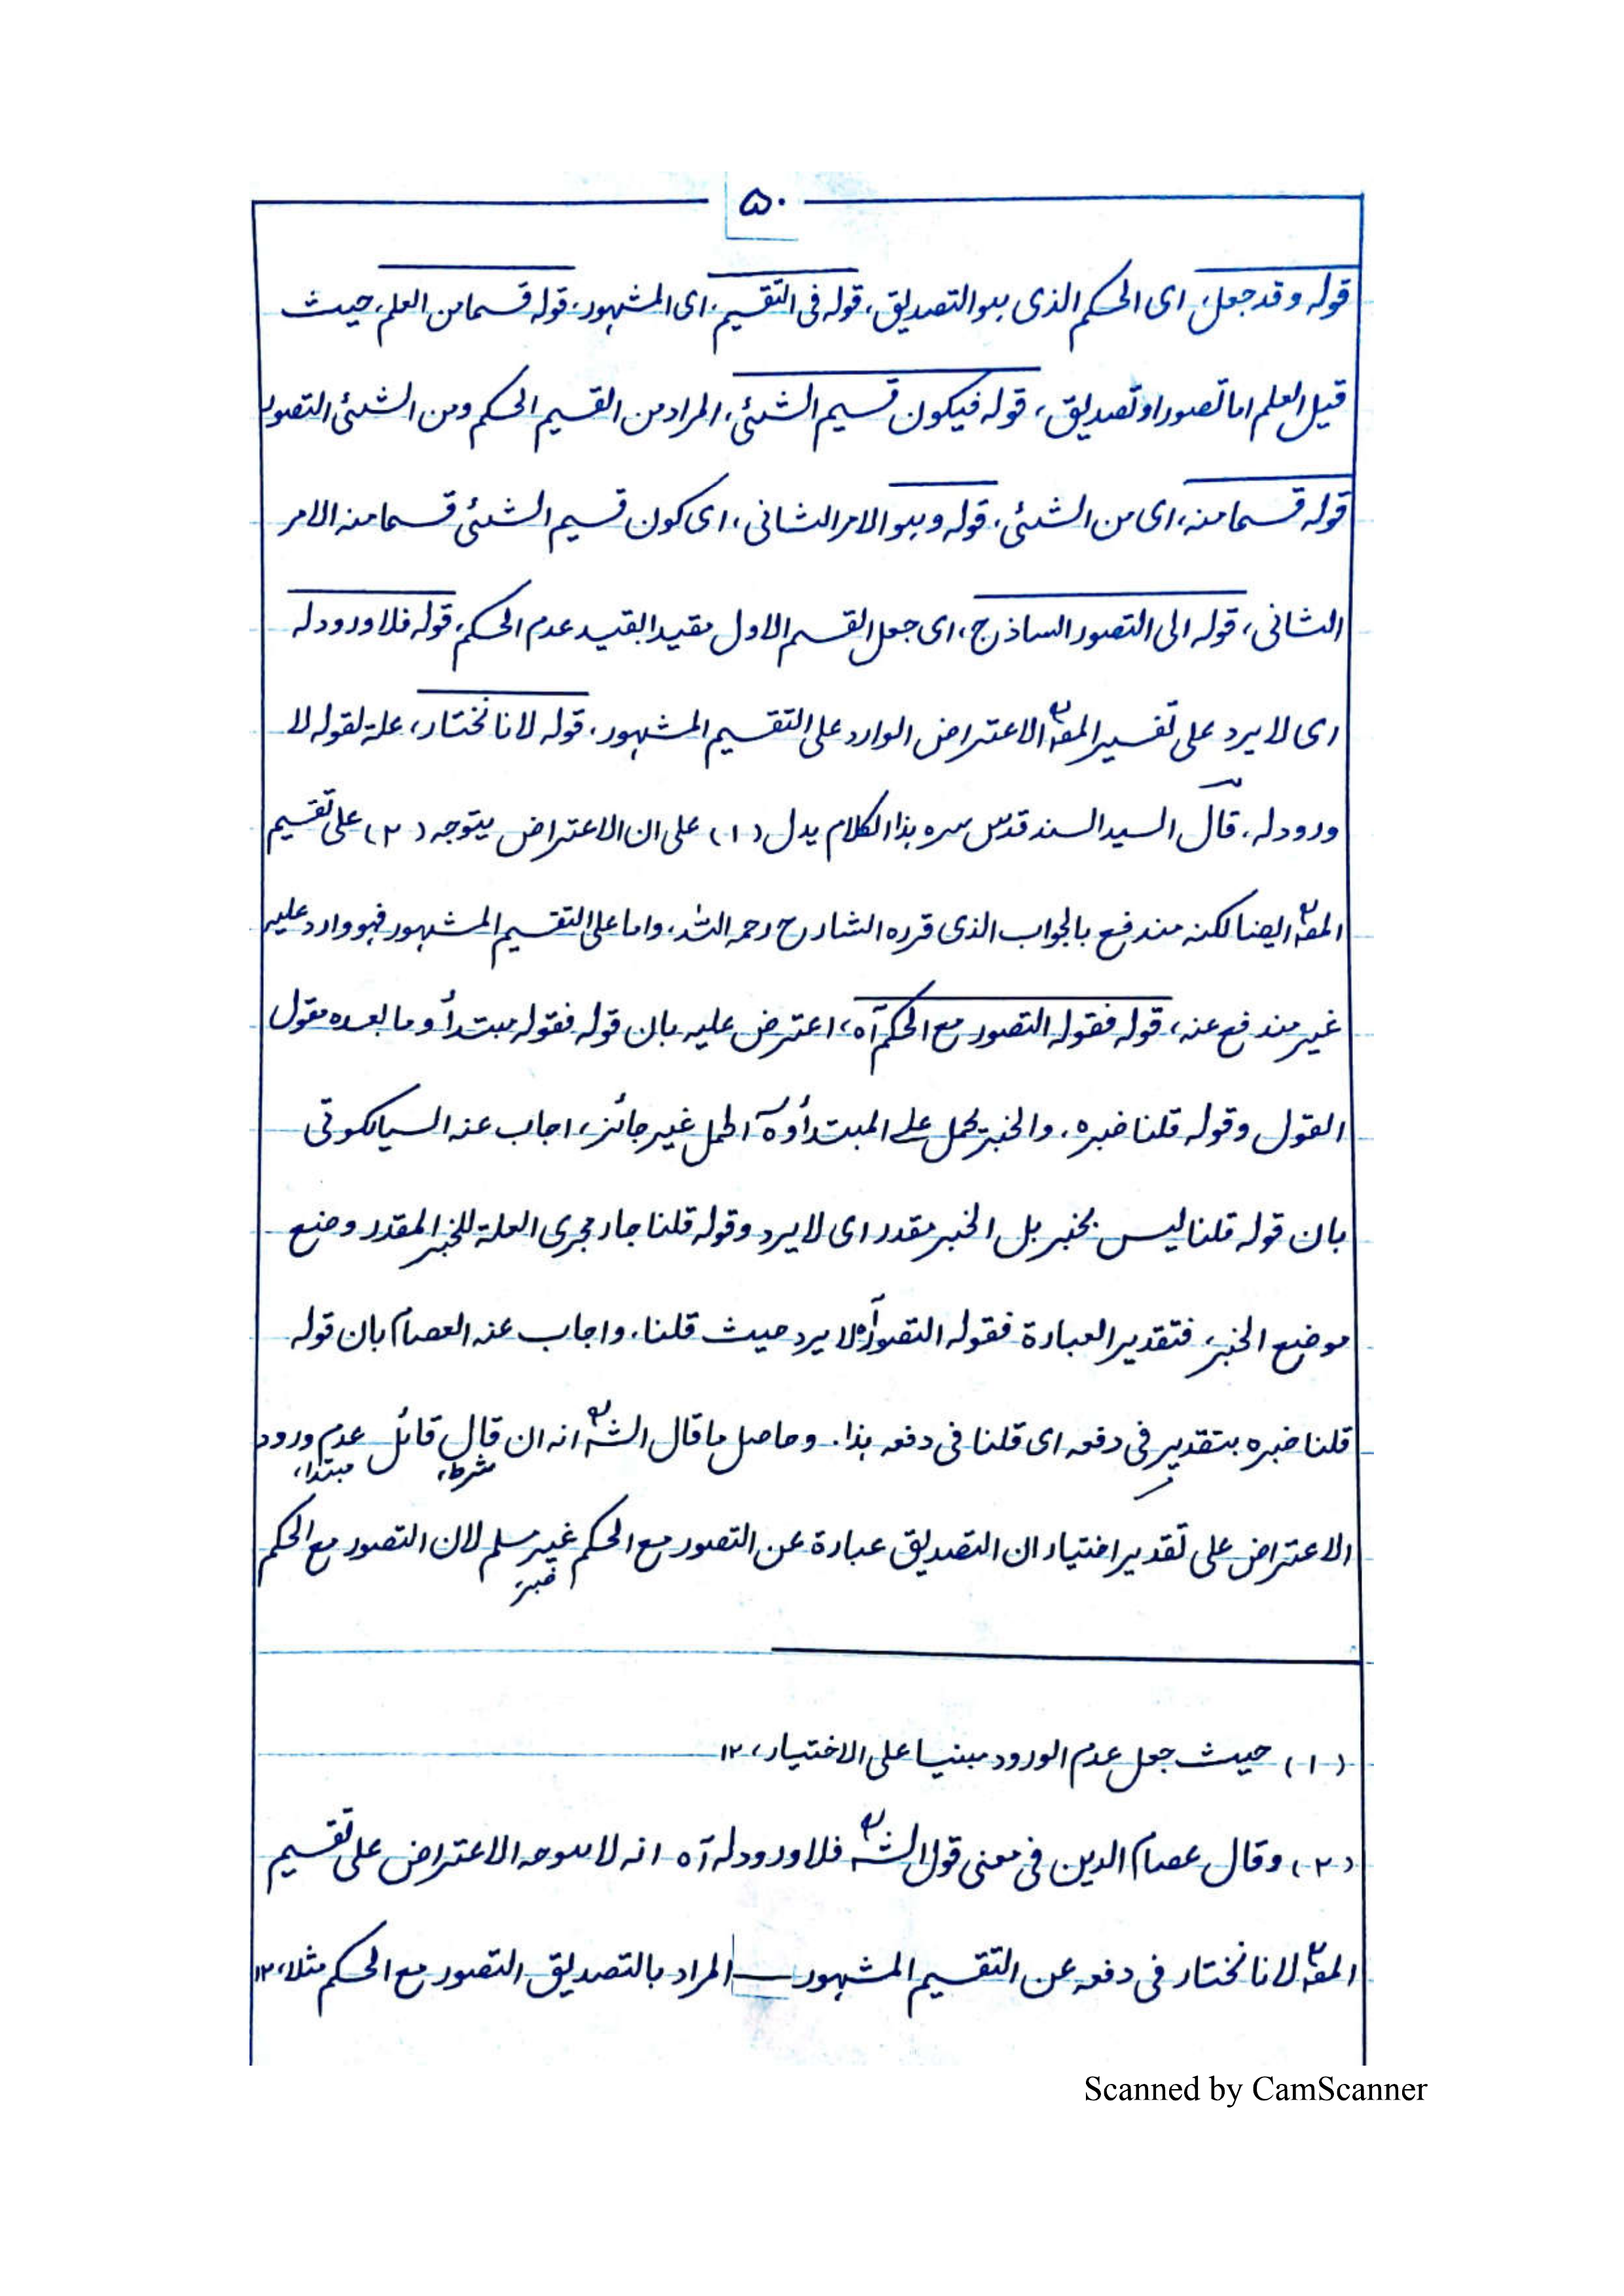 ۵۰
قوله وقد جعل، اى الحكم الذى هو التصديق، قوله فى التقسيم، اى المشهور، قوله قسما من العلم، حيث
قيل العلم اما تصور او تصديق، قوله فيكون قسيم الشئى، المراد من القسيم الحكم ومن الشئى التصور
قوله قسما منه، اى من الشئى، قوله وهو الامر الثانى، اى كون قسيم الشئى قسما منه الامر
الثانى، قوله الى التصور الساذج، اى جعل القسم الاول مقيدا بقيد عدم الحكم، قوله فلا ورود له
اى لا يرد على تفسير المصؒ الاعتراض الوارد على التقسيم المشهور، قوله لانا نختار، علة لقوله لا
ورود له، قال السيد السند قدس سره هذا الكلام يدل (۱) على ان الاعتراض يتوجه (۲) على تقسيم
المصؒ ايضا لكنه مندفع بالجواب الذى قرره الشارح رحمه الله، واما على التقسيم المشهور فهو وارد عليه
غير مندفع عنه، قوله فقوله التصور مع الحكم آه، اعترض عليه بان قوله فقوله مبتدأ وما بعده مقول
القول وقوله قلنا خبره، والخبر يحمل على المبتدأ وه آ الحمل غير جائز، اجاب عنه السيالكوتى
بان قوله قلنا ليس بخبر بل الخبر مقدر اى لا يرد وقوله قلنا جار مجرى العلة للخبر المقدر وضع
موضع الخبر، فتقدير العبارة فقوله التصور آه لا يرد حيث قلنا، واجاب عنه العصام بان قوله
قلنا خبره بتقدير فى دفعه اى قلنا فى دفعه هذا. وحاصل ما قال الشؒ انه ان قال قائل عدم ورود
شرط، مبتدا،
الاعتراض على تقدير اختيار ان التصديق عبارة عن التصور مع الحكم غير مسلم لان التصور مع الحكم
خبر
(۱) حيث جعل عدم الورود مبنيا على الاختيار، ۱۲
(۲) وقال عصام الدين فى معنى قول الشؒ فلا ورود له آه انه لا يتوجه الاعتراض على تقسيم
المصؒ لانا نختار فى دفعه عن التقسيم المشهور المراد بالتصديق التصور مع الحكم مثلا، ۱۲
Scanned by CamScanner